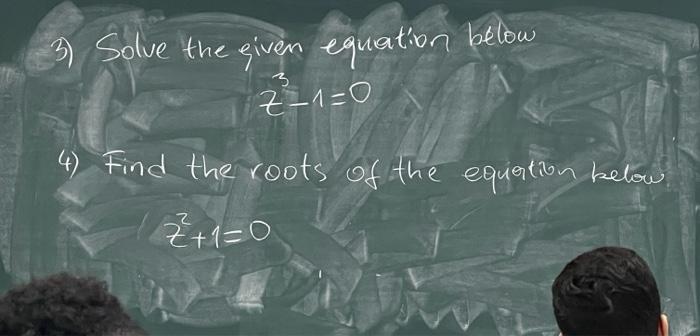 3) Solve the given equation below
z³-1=0
4) Find the roots of the equation below
z²+1=0